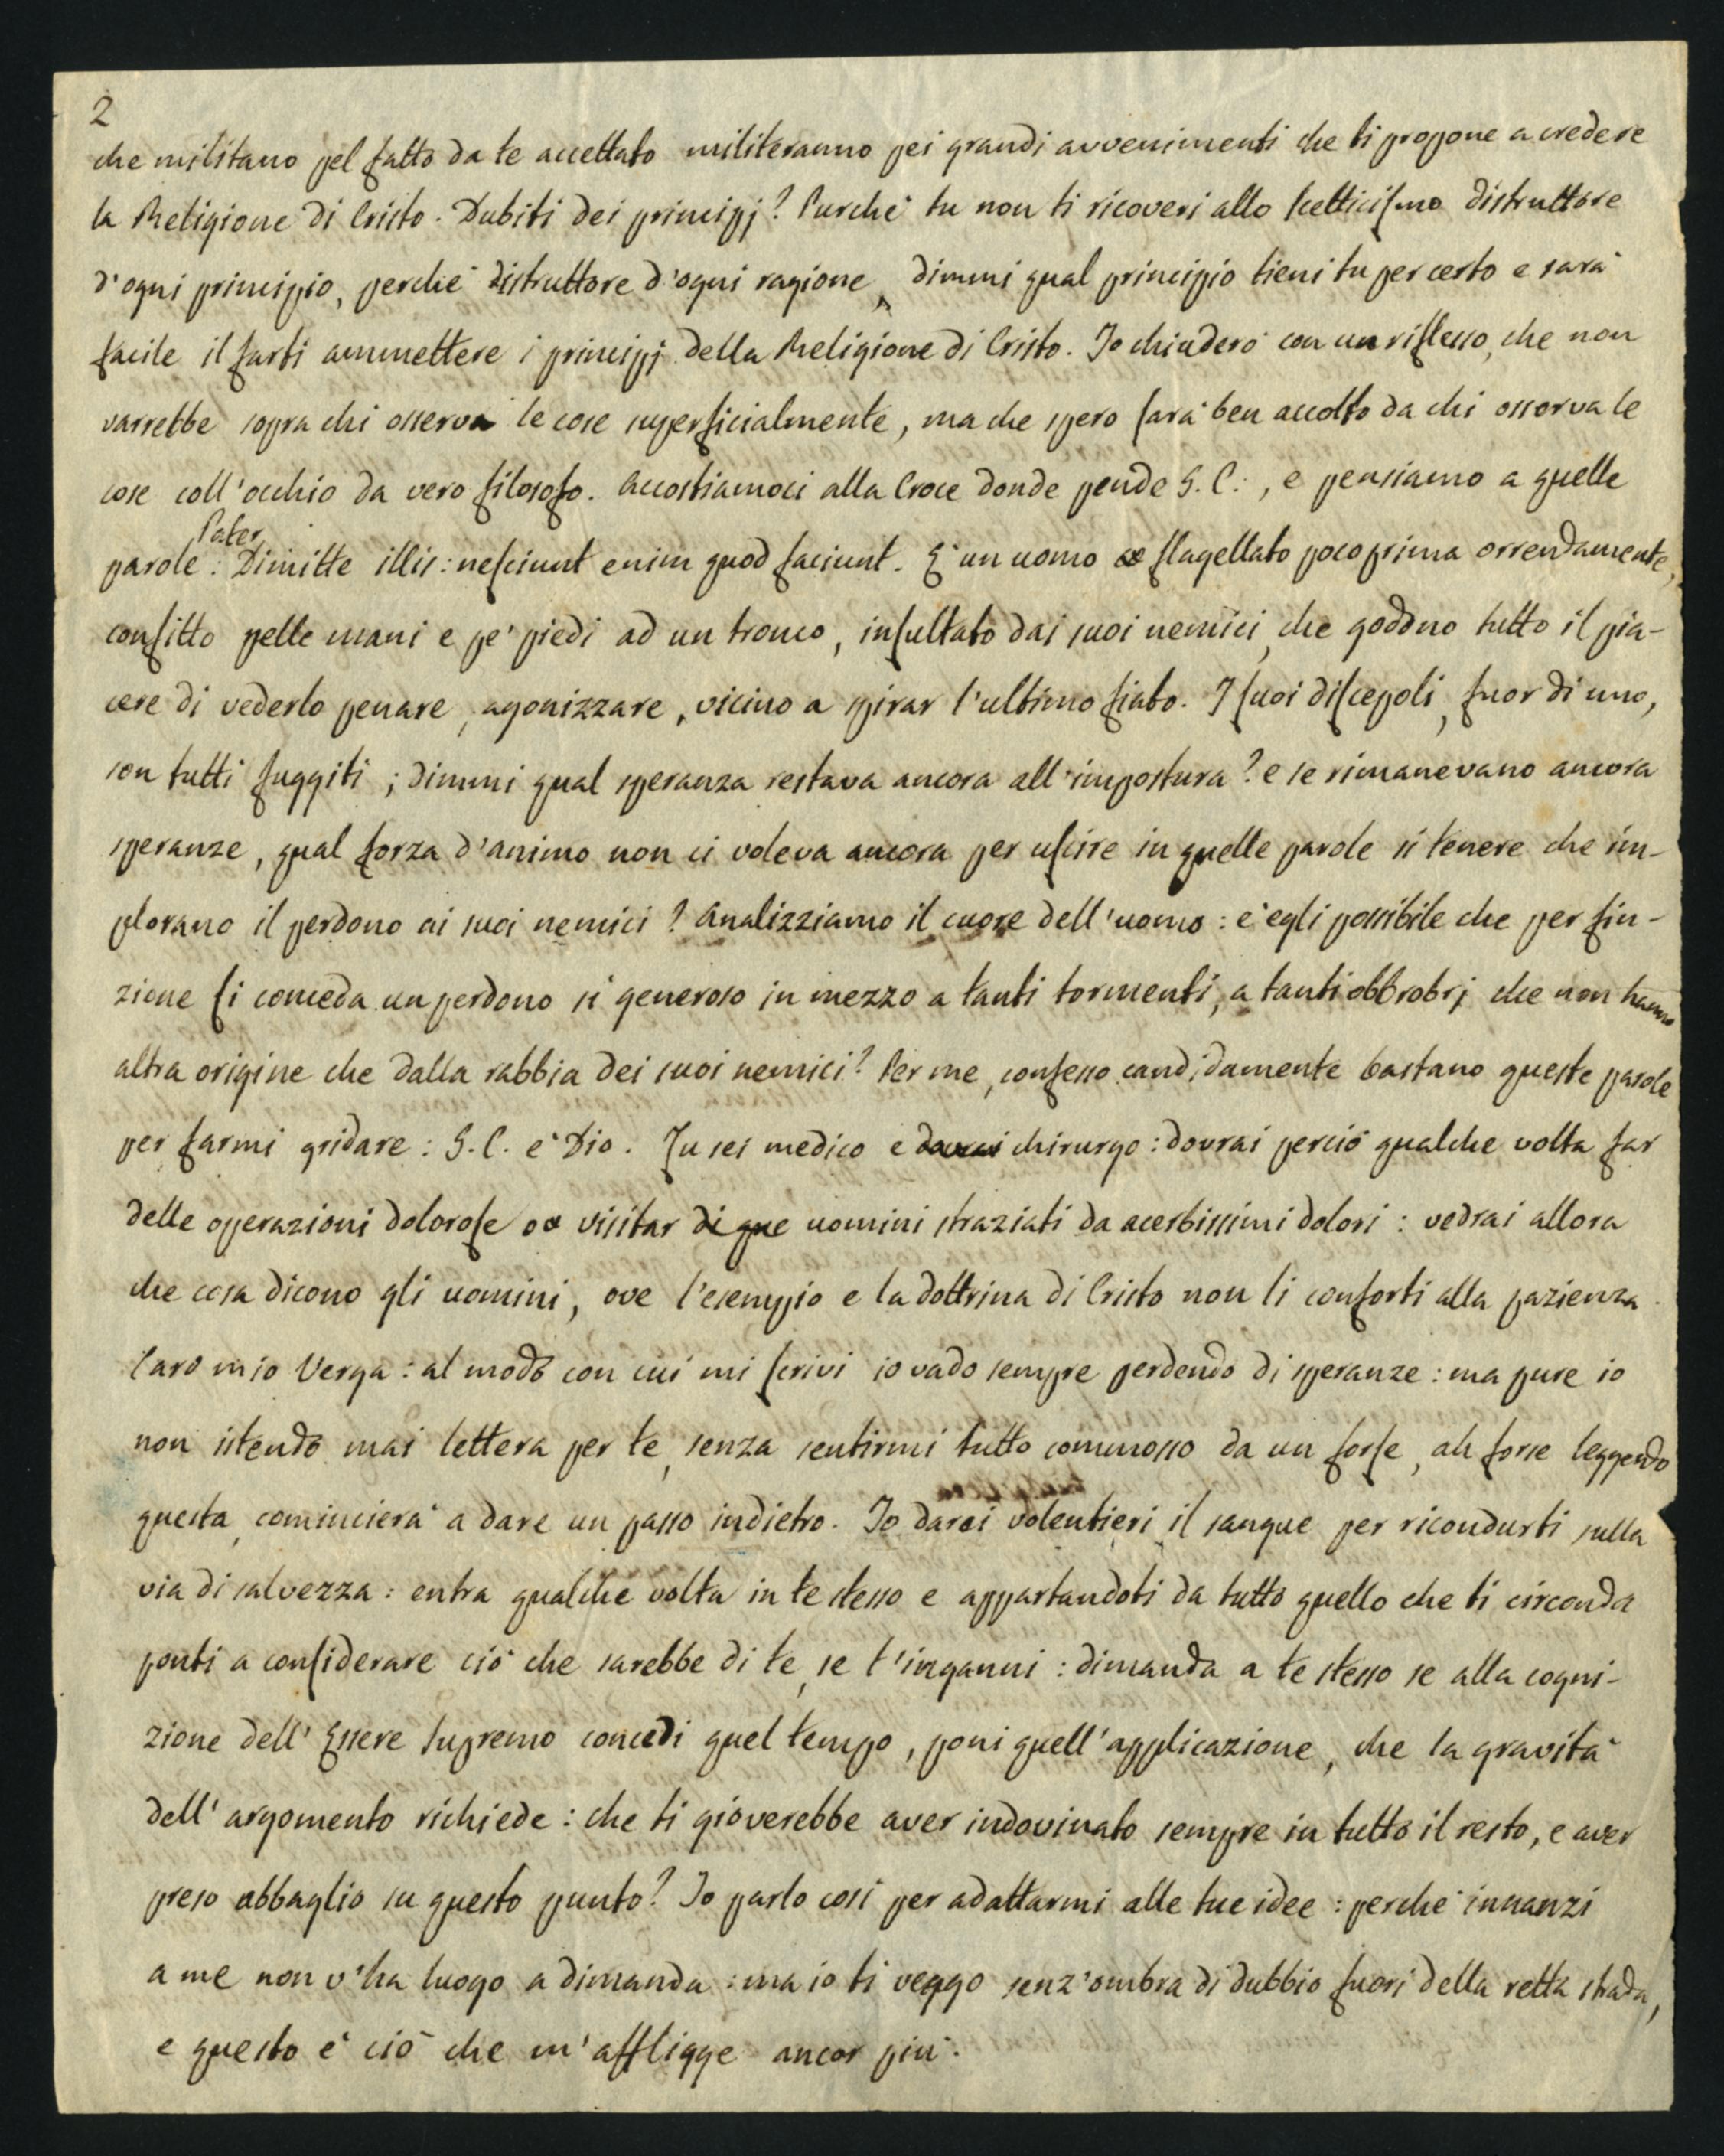 2
che militano pel fatto da te accettato militeranno pei grandi avvenimenti che ti propone a credere
la Religione di Cristo. Dubiti dei principj? Purchè tu non ti ricoveri allo scetticismo distruttore
d'ogni principio, perchè distruttore d'ogni ragione, dimmi qual principio tieni tu per certo e sarà
facile il farti ammettere i principj della Religione di Cristo. Io chiuderò con un riflesso, che non
varrebbe sopra chi osserva le cose superficialmente, ma che spero sarà ben accolto da chi osserva le
cose coll'occhio da vero filosofo. Accostiamoci alla Croce donde pende G. C., e pensiamo a quelle
Pater
parole: Dimitte illis: nesciunt enim quod faciunt. È un uomo flagellato poco prima orrendamente,
confitto pelle mani e pe' piedi ad un tronco, insultato dai suoi nemici, che godono tutto il pia-
cere di vederlo penare, agonizzare, vicino a spirar l'ultimo fiato. I suoi discepoli, fuor di uno,
son tutti fuggiti; dimmi qual speranza restava ancora all'impostura? e se rimanevano ancora
speranze, qual forza d'animo non ci voleva ancora per uscire in quelle parole sì tenere che im-
plorano il perdono ai suoi nemici? Analizziamo il cuore dell'uomo: è egli possibile che per fin-
zione si conceda un perdono sì generoso in mezzo a tanti tormenti, a tanti obbrobrj che non hanno
altra origine che dalla rabbia dei suoi nemici? Per me, confesso candidamente bastano queste parole
per farmi gridare: G. C. è Dio. Tu sei medico e dovrai chirurgo: dovrai perciò qualche volta far
delle operazioni dolorose o visitar di que uomini straziati da acerbissimi dolori: vedrai allora
che cosa dicono gli uomini, ove l'esempio e la dottrina di Cristo non li conforti alla pazienza.
Caro mio Verga: al modo con cui mi scrivi io vado sempre perdendo di speranze: ma pure io
non istendo mai lettera per te, senza sentirmi tutto commosso da un forse, ah forse leggendo
questa, comincierà a dare un passo indietro. Io darei volentieri il sangue per ricondurti sulla
via di salvezza: entra qualche volta in te stesso e appartandoti da tutto quello che ti circonda
ponti a considerare ciò che sarebbe di te, se t'inganni: dimanda a te stesso se alla cogni-
zione dell'Essere Supremo concedi quel tempo, poni quell'applicazione, che la gravità
dell'argomento richiede: che ti gioverebbe aver indovinato sempre in tutto il resto, e aver
preso abbaglio su questo punto? Io parlo così per adattarmi alle tue idee: perchè innanzi
a me non v'ha luogo a dimanda: ma io ti veggo senz'ombra di dubbio fuori della retta strada,
e questo è ciò che m'affligge ancor più.